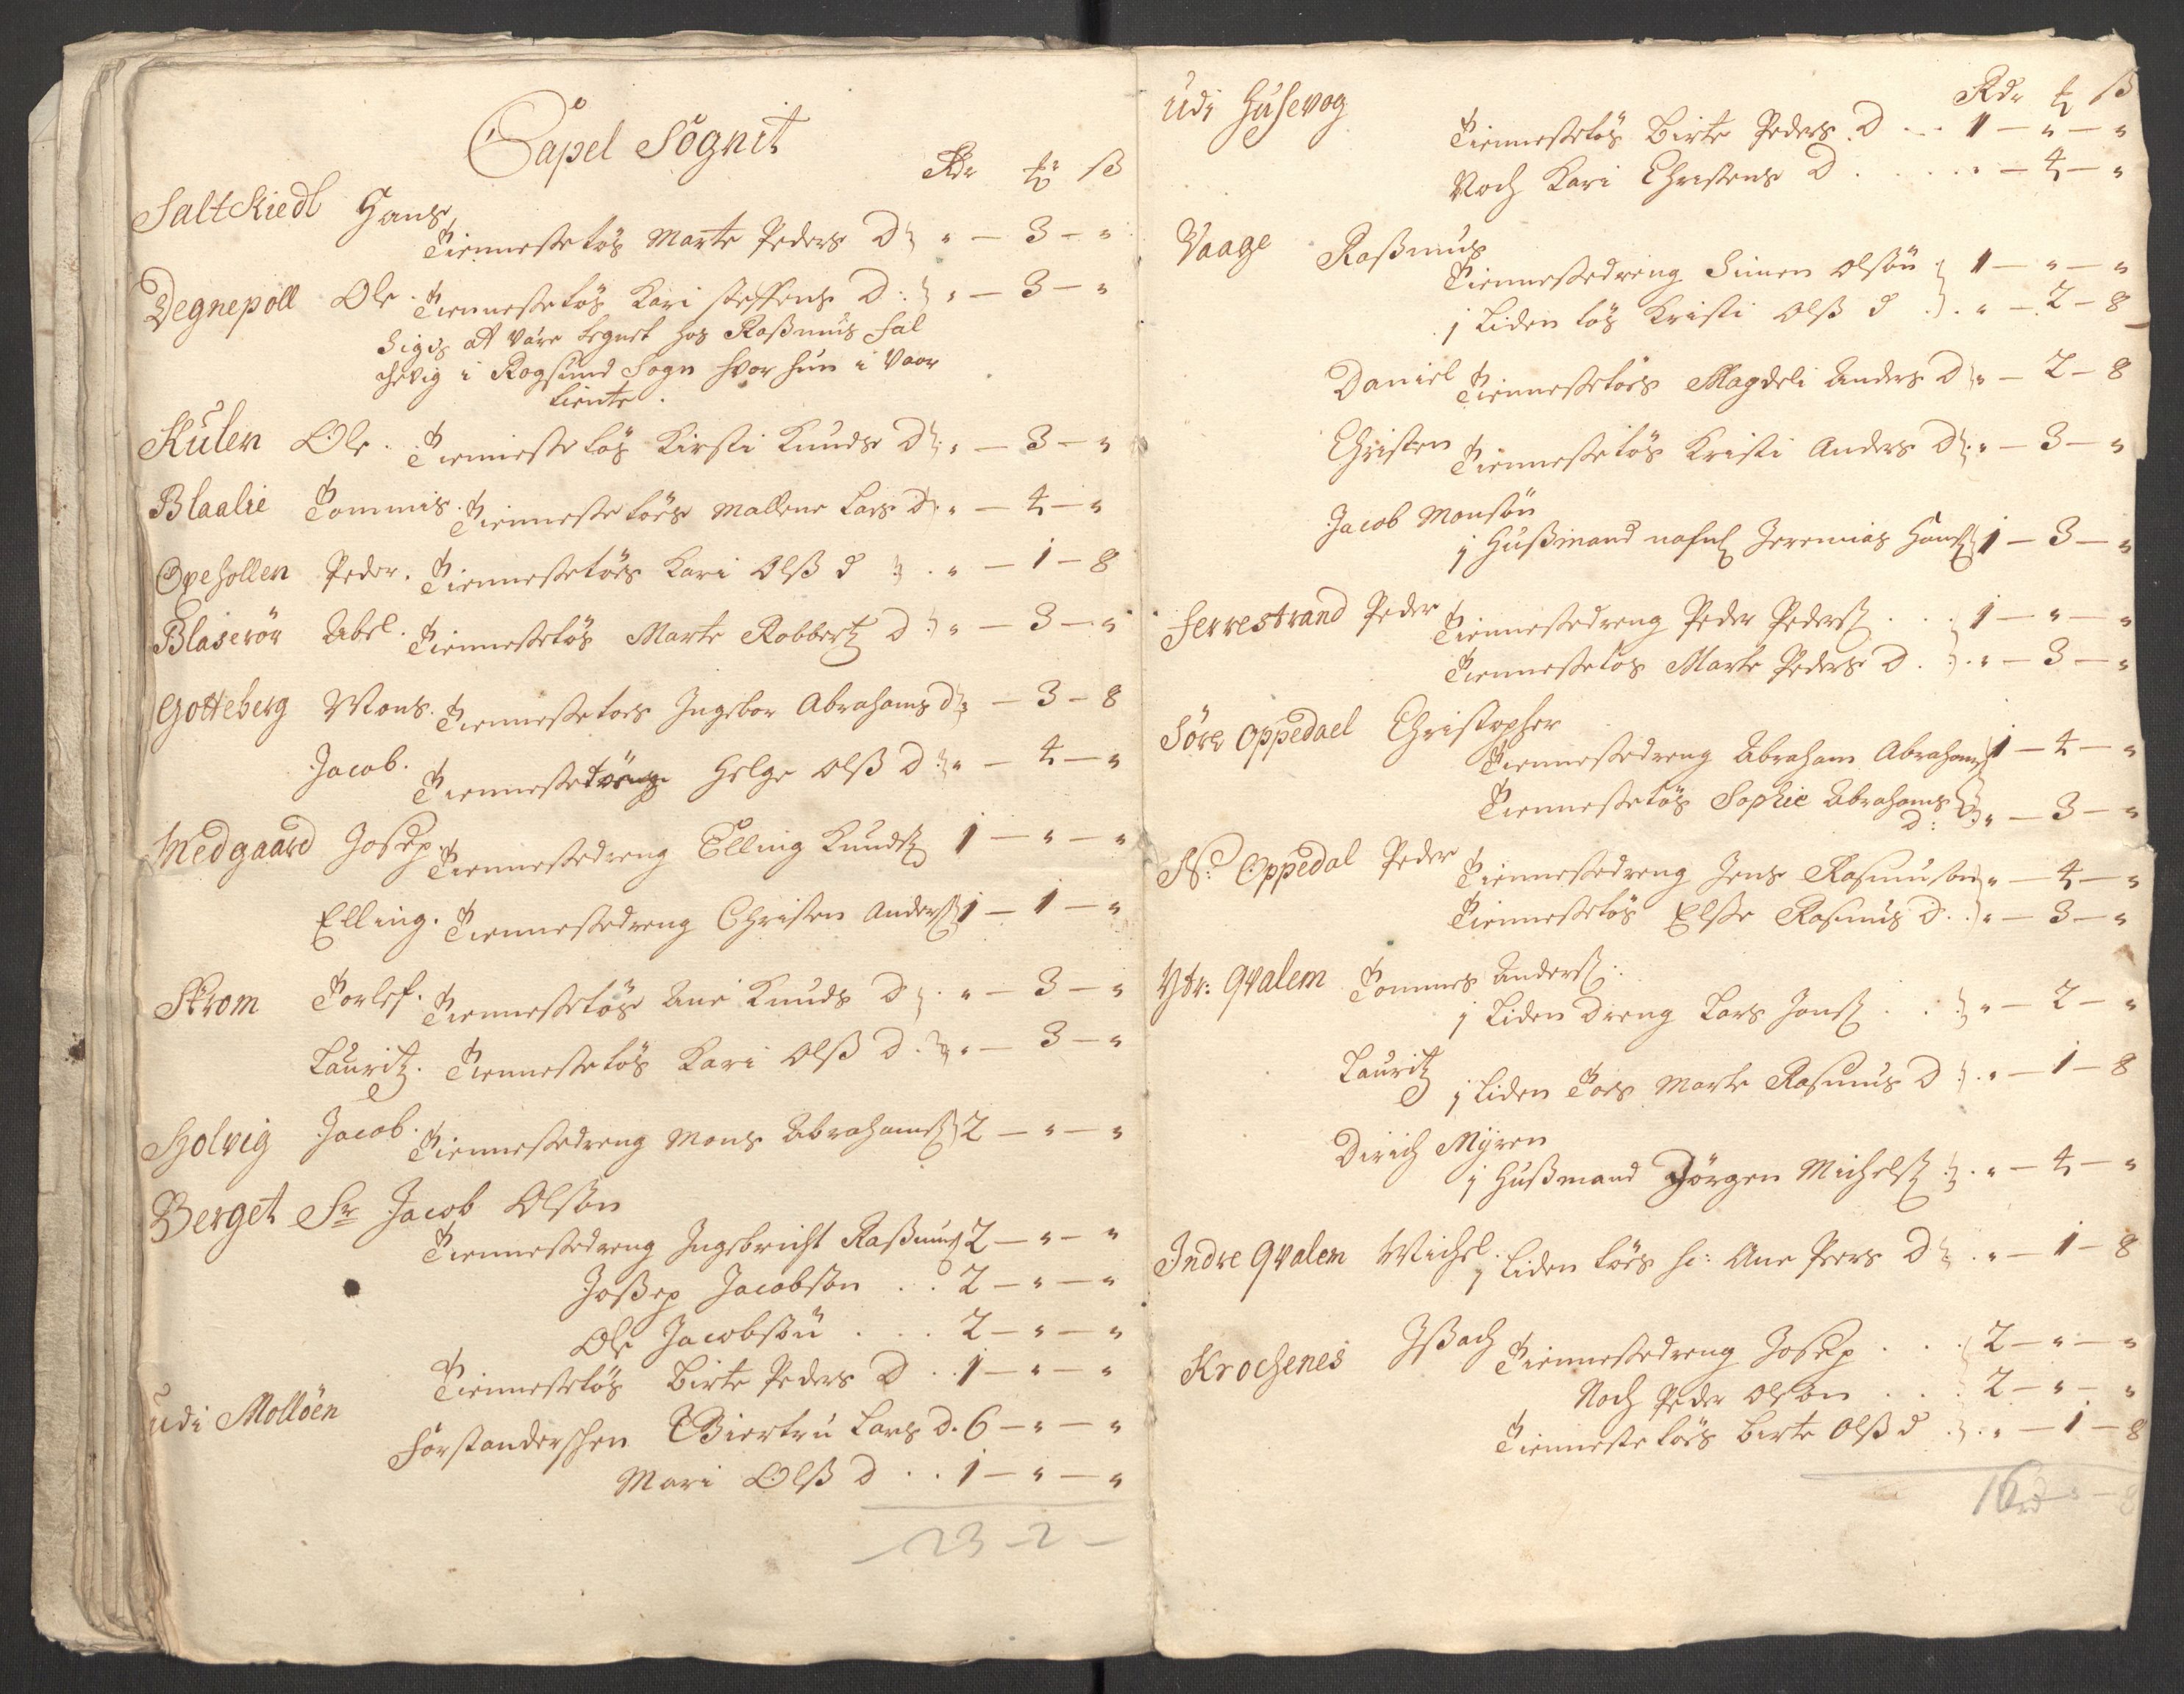 Capel Sognit
Rdr ꝉ ß
Saltskiedl Hans
Tienneste tøs Marte Peders D " — 3 — "
Degnepoll Ole. Tienneste tøs Kari steffens D: " — 3 — "
Siges at være tegnet hos Raßmus
i Rogsund Sogn hvor hun i Vaar
tiente.
Skulen Ole. Tienneste tøs Kirsti Knuds D: " — 3 — "
Blaalie Tommis. Tienneste tøes Mallene Lars D " — 4 — "
Opehollen Peder. Tienneste tøes Kari Olß d " — 1 — 8
Blaserør Abel. Tienneste tøs Marte Robbertz D: " — 3 — "
Gotteberg Mons. Tienneste toes Ingebor Abrahams d " — 3 — 8
Jacob. Tienneste Helge Olß D " — 4 — "
Medgaard Josep. Tiennestedreng Elling Knudsß 1 — " — "
Elling. Tiennestedreng Christen Andersß 1 — 1 — "
Strom Torlef. Tienneste tøs Ane Knuds D " — 3 — "
Lauritz. Tienneste tøs Kari Olß D. " — 3 — "
Holvig Jacob. Tiennestedreng Mons Abrahamsß 2 — " — "
Berget Sr Jacob Olson
Tiennestedreng Ingebricht Raßmusß 2 — " — "
Joßep Jacobson . . 2 — " — "
Ole Jacobsøn . . . 2 — " — "
Tienneste tøs Birte Peders D . . 1 — " — "
udi Molløen
Forstanderschen Biertru Lars D. 6 — " — "
Mari Olß D . . 1 — " — "
23 — 2 —
udi Husevog
Rdr ꝉ ß
Tienneste tøs Birte Peders D . . 1 — " — "
Noch Kari Christens D . . . . " — 4 — "
Vaage Raßmus
Tiennestedreng Simen Olsøn 1 — " — "
1 Liden tøs Kristi Olß d . " — 2 — 8
Daniel Tienneste toes Magdeli Anders D " — 2 — 8
Christen Tienneste tøs Kristi Anders D: " — 3 — "
Jacob Monsøn
1 Hußmand nafnl Jeremias Hansß 1 — 3 — "
Ferrestrand Peder Tiennestedreng Peder Pedersß . . . 1 — " — "
Tienneste tøs Marte Peders D. " — 3 — "
Søre Oppedael Christopher
Tiennestedreng Abraham Abrahamsß 1 — 4 — "
Tienneste tøs Sophie Abrahams
D: " — 3 — "
N: Oppedal Peder Tiennestedreng Jens Rasmuson " — 4 — "
Tienneste tøs Elße Rasmus D. " — 3 — "
Ytr: Qvalem Tommes Andersß.
1 Liden Dreng Lars Jonsß . . " — 2 — "
Lauritz
1 Liden Toes Marte Rasmus D . " — 1 — 8
Dirich Myren
1 Hußmand Jørgen Michelsß . " — 4 — "
Indre Qvalem Michel. 1 Liden tøes h: Ane Peers D . " — 1 — 8
Krochenes Ißach Tiennestedreng Josep . . . 2 — " — "
Noch Peder Olson . . . 2 — " — "
Tienneste tøes Birte Olß d . " — 1 — 8
16 rd " — 8